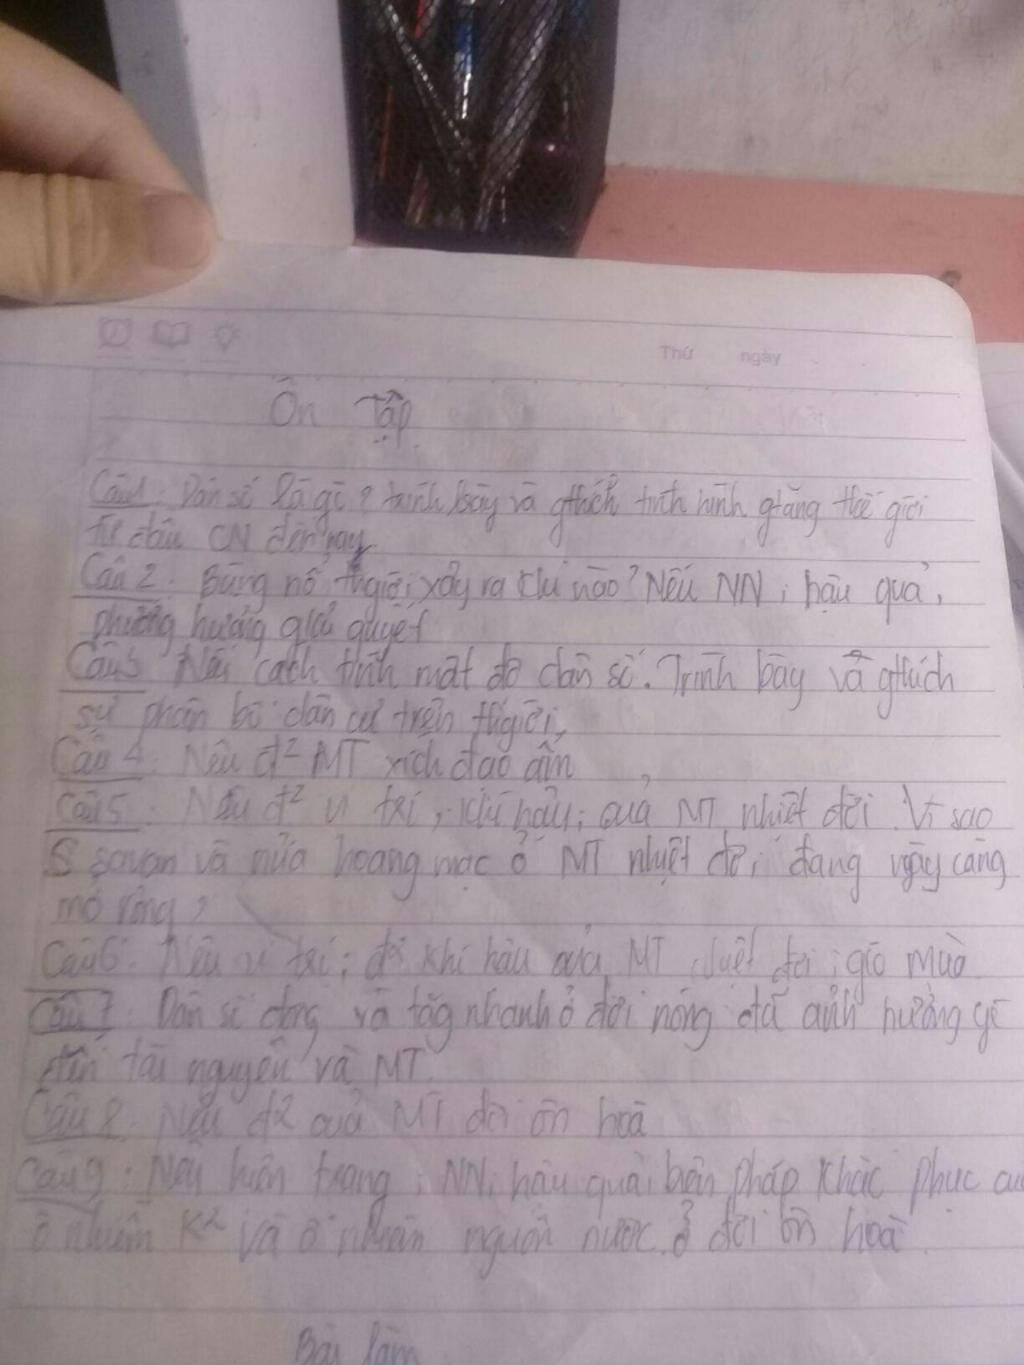 Thứ ngày
Ôn Tập
Câu1: Dân số là gì? trình bày và gthích tình hình gtăng thế giới
từ đầu CN đến nay
Câu 2: Bùng nổ tgiới xảy ra khi nào? Nêu NN, hậu quả,
phương hướng giải quyết
Câu3 Nêu cách tính mật độ dân số. Trình bày và gthích
sự phân bố dân cư trên tgiới,
Câu 4: Nêu đ² MT xích đạo ẩm
Câu 5: Nêu đ² vị trí, khí hậu, của MT nhiệt đới. Vì sao
S savan và nửa hoang mạc ở MT nhiệt đới đang ngày càng
mở rộng?
Câu6: Nêu vị trí; đ² khí hậu của MT nhiệt đới gió mùa
Câu 7: Dân số đông và tăg nhanh ở đới nóng đã ảnh hưởng gì
đến tài nguyên và MT.
Câu 8: Nêu đ² của MT đới ôn hoà
Câu 9: Nêu hiện trạng, NN, hậu quả, biện pháp khắc phục
ô nhiễm K² và ô nhiễm nguồn nước ở đới ôn hoà.
Bài làm